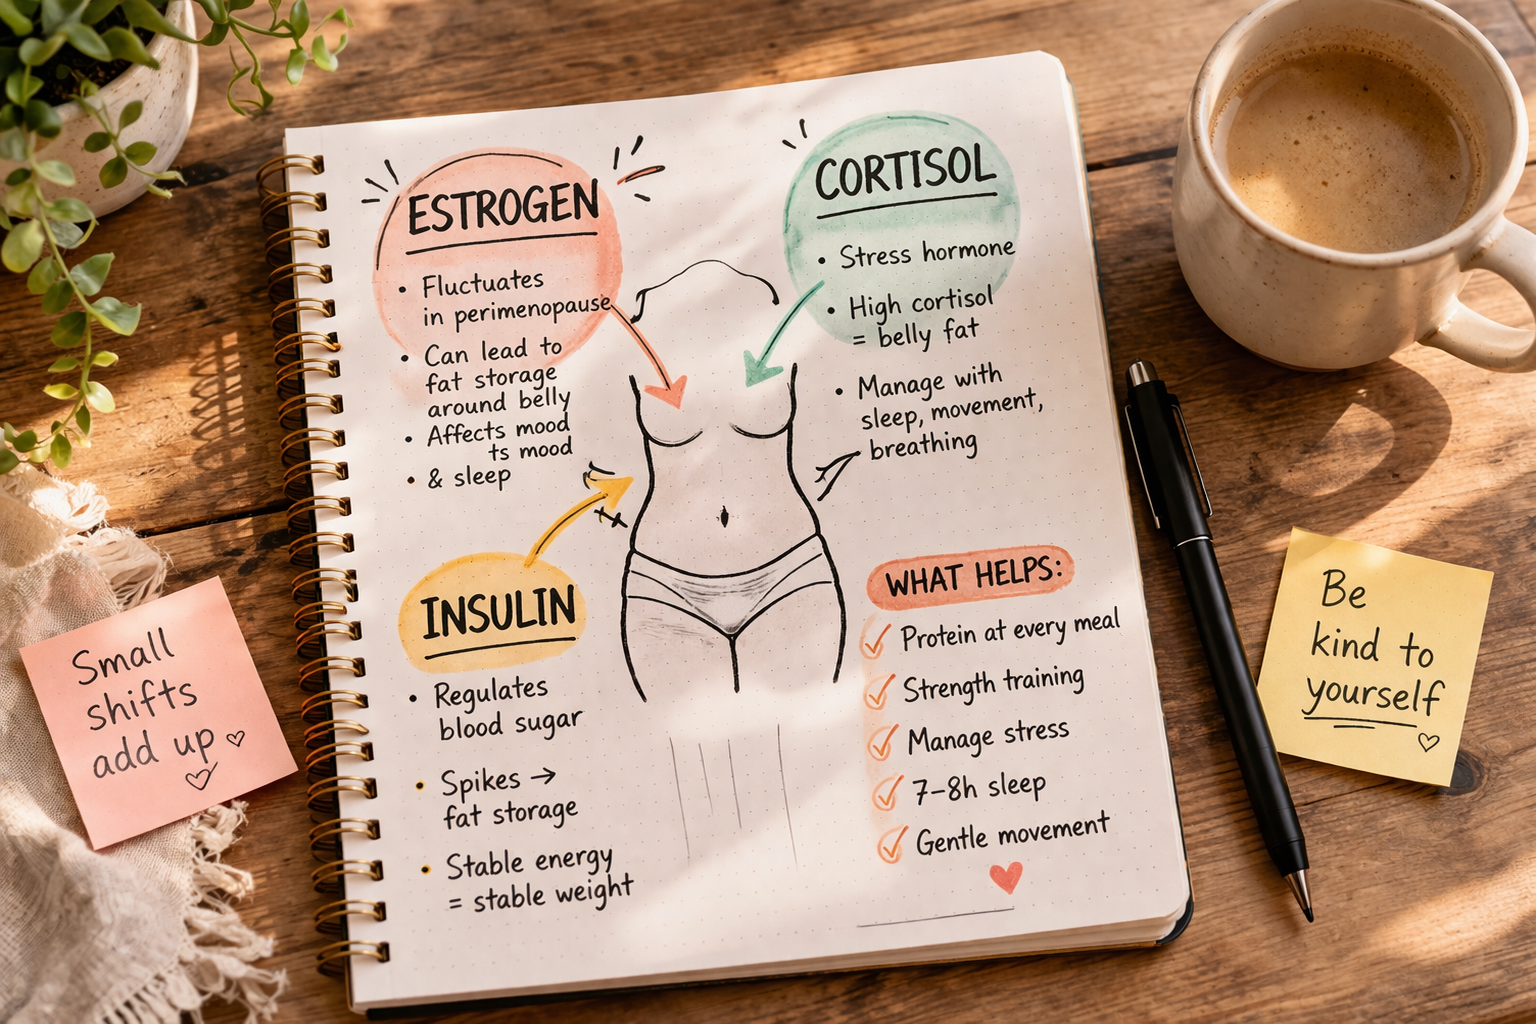 ESTROGEN
• Fluctuates
in perimenopause
• Can lead to
fat storage
around belly
• Affects mood
ts mood
• & sleep
CORTISOL
• Stress hormone
• High cortisol
= belly fat
• Manage with
sleep, movement,
breathing
INSULIN
• Regulates
blood sugar
• Spikes →
fat storage
• Stable energy
= stable weight
WHAT HELPS:
✓ Protein at every meal
✓ Strength training
✓ Manage stress
✓ 7–8h sleep
✓ Gentle movement
Small
shifts
add up
Be
kind to
yourself